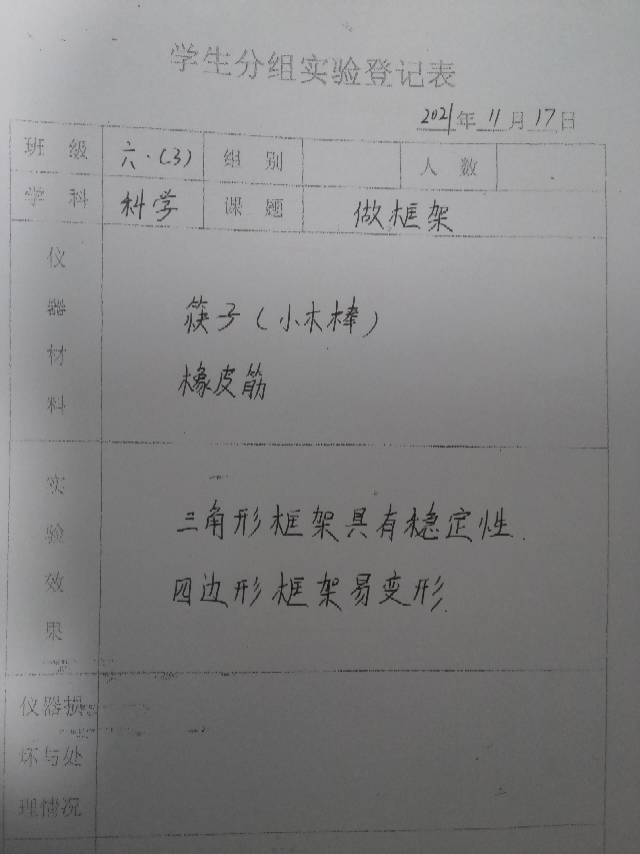 学生分组实验登记表
2021年11月17日
班级 六.(3) 组别 人数
学科 科学 课题 做框架
仪器材料
筷子(小木棒)
橡皮筋
实验效果
三角形框架具有稳定性.
四边形框架易变形.
仪器损
坏与处
理情况